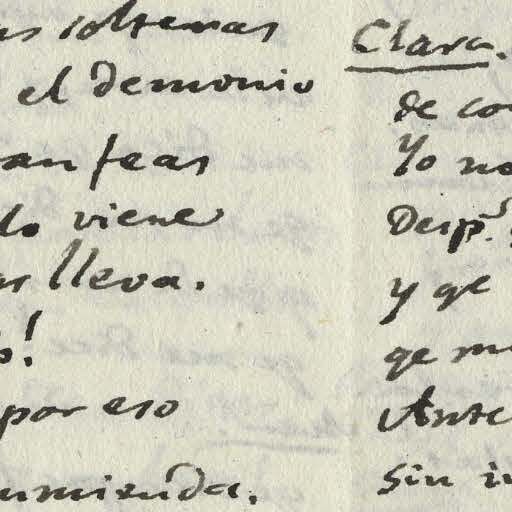 solteras
el demonio
an feas
do viene
lleva.
por eso
Clara.
de co
Yo no
Desp.s
y qe
qe m
Ante
Sin